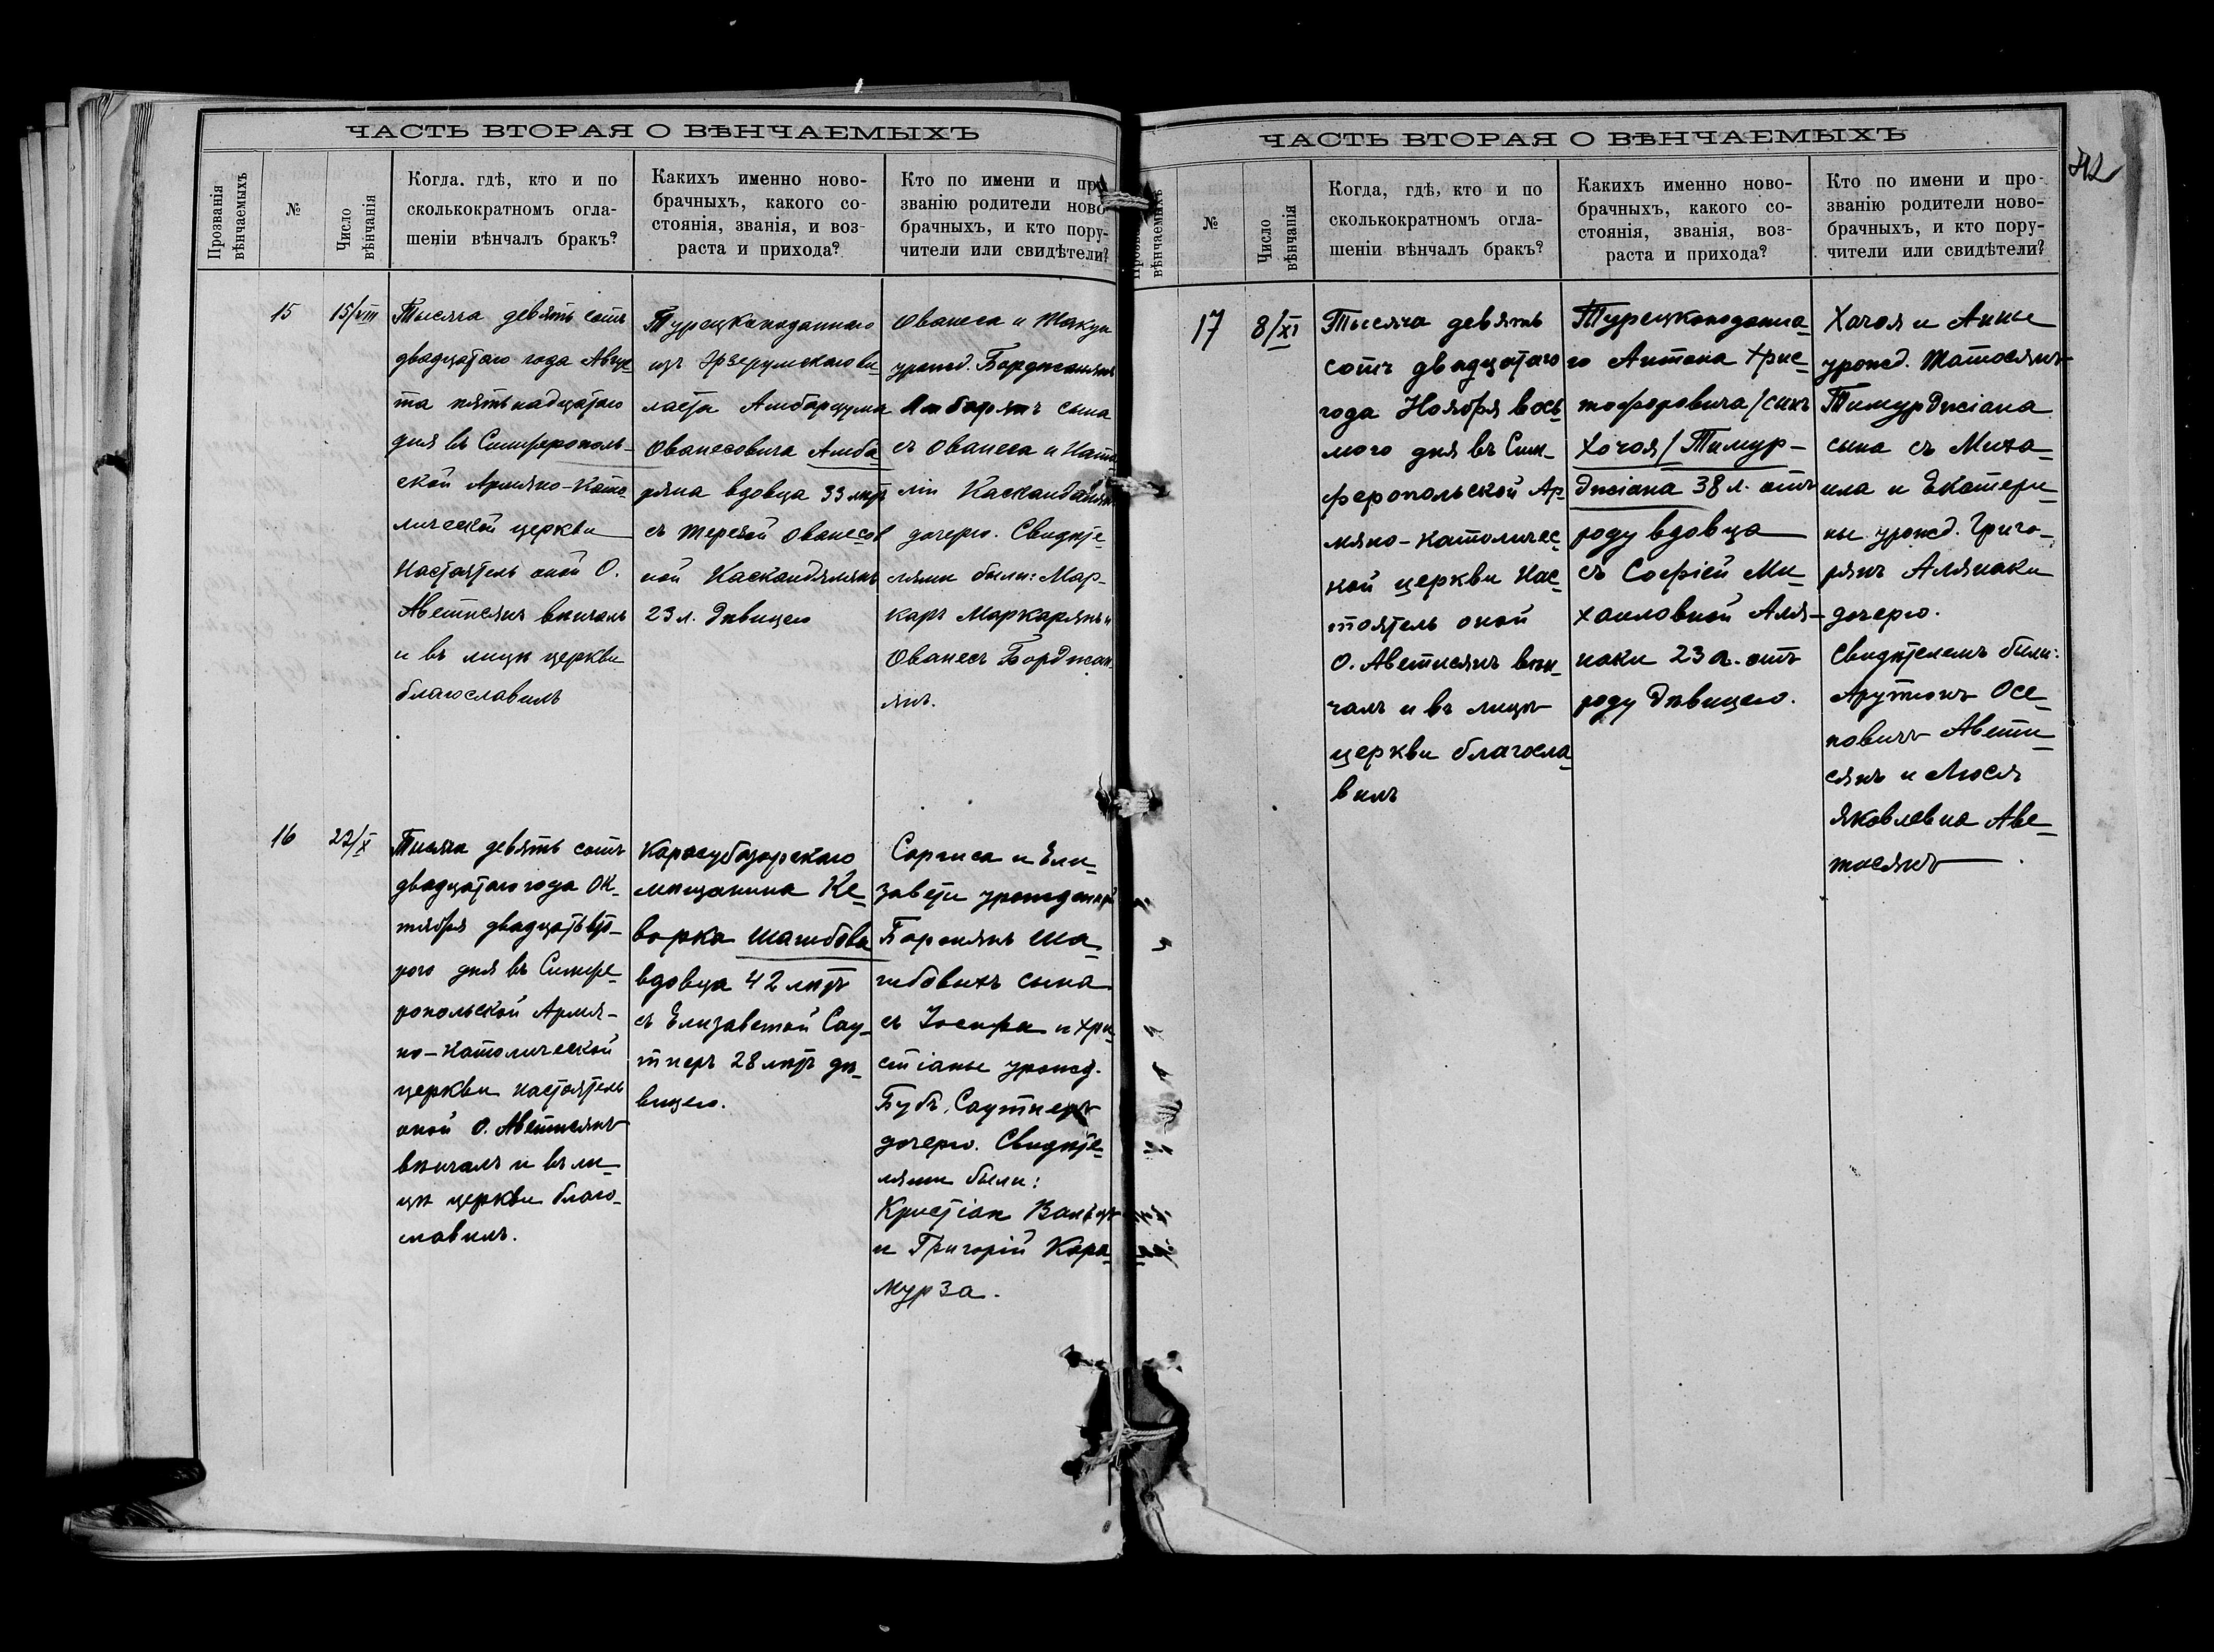 ЧАСТЬ ВТОРАЯ О ВѢНЧАЕМЫХЪ
Прозванія
вѣнчаемыхъ
№
Число
вѣнчанія
Когда. гдѣ, кто и по
сколькократномъ огла-
шеніи вѣнчалъ бракъ?
Какихъ именно ново-
брачныхъ, какого со-
стоянія, званія, и воз-
раста и прихода?
Кто по имени и про
званію родители ново-
брачныхъ, и кто пору-
чители или свидѣтели?
15
15/VIII
Тысяча девять сотъ
двадцатаго года Авгус-
та пятьнадцатаго
дня въ Симферополь-
ской Армяно-Като-
лической церкви
Настоятель оной О.
Аветисянъ вѣнчалъ
и въ лицѣ церкви
благославилъ
Турецкоподаннаго
изъ Эрзерумскаго ви
лаета Амбарцума
Ованесовича Амба-
ряна вдовца 33 лѣтъ
съ Терезой Ованесов
ной Каскандилянъ
23 л. дѣвицею
Ованеса и
урожд. Борджанянъ
сына
съ Ованеса и Ната
ліи
дочерю. Свидѣте-
лями были: Мар-
каръ Маркарянъ и
Ованесъ Борджан
янъ.
16
22/X
Тысяча девять сотъ
двадцатаго года Ок-
тября двадцать вто-
рого дня въ Симфе-
ропольской Армя-
но-Католической
церкви настоятель
оной О. Аветисянъ
вѣнчалъ и въ ли-
цѣ церкви благо-
славилъ.
Карасубазарскаго
мѣщанина Ке-
ворка Шагибова
вдовца 42 лѣтъ
съ Елизаветой Сау-
тнеръ 28 лѣтъ дѣ-
вицею.
Саргиса и Ели-
заветы урожденной
Бароянъ Ша-
гибовыхъ сына
съ Іосифа и Хри-
стіаны урожд.
Бубъ. Саутнеръ
дочерю. Свидѣте-
лями были:
Кристіан
и Григорій Кара-
мурза.
ЧАСТЬ ВТОРАЯ О ВѢНЧАЕМЫХЪ
42
вѣнчаемыхъ
№
Число
вѣнчанія
Когда, гдѣ, кто и по
сколькократномъ огла-
шеніи вѣнчалъ бракъ?
Какихъ именно ново-
брачныхъ, какого со-
стоянія, званія, воз-
раста и прихода?
Кто по имени и про-
званію родители ново-
брачныхъ, и кто пору-
чители или свидѣтели?
17
8/XI
Тысяча девять
сотъ двадцатаго
года Ноября вось
мого дня въ Сим-
феропольской Ар-
мяно-католичес-
кой церкви Нас-
тоятель оной
О. Аветисянъ вѣн-
чалъ и въ лицѣ
церкви благосла-
вилъ
Турецкоподанна-
го Антона Хрис-
тофоровича /сынъ
Хачоя/ Тимур-
джіана 38 л. отъ
роду вдовца
съ Софіей Ми-
хаиловной Аля-
наки 23 л. отъ
роду дѣвицею.
Хачоя и Анны
урожд. Татосянъ
Тимурджіана
сына съ Миха-
ила и Екатери-
ны урожд. Григо-
рянъ Алянаки
дочерю.
Свидѣтелемъ были:
Арутюнъ Осе-
повичъ Авети-
сянъ и Люся
Яковлевна Аве-
тисянъ.